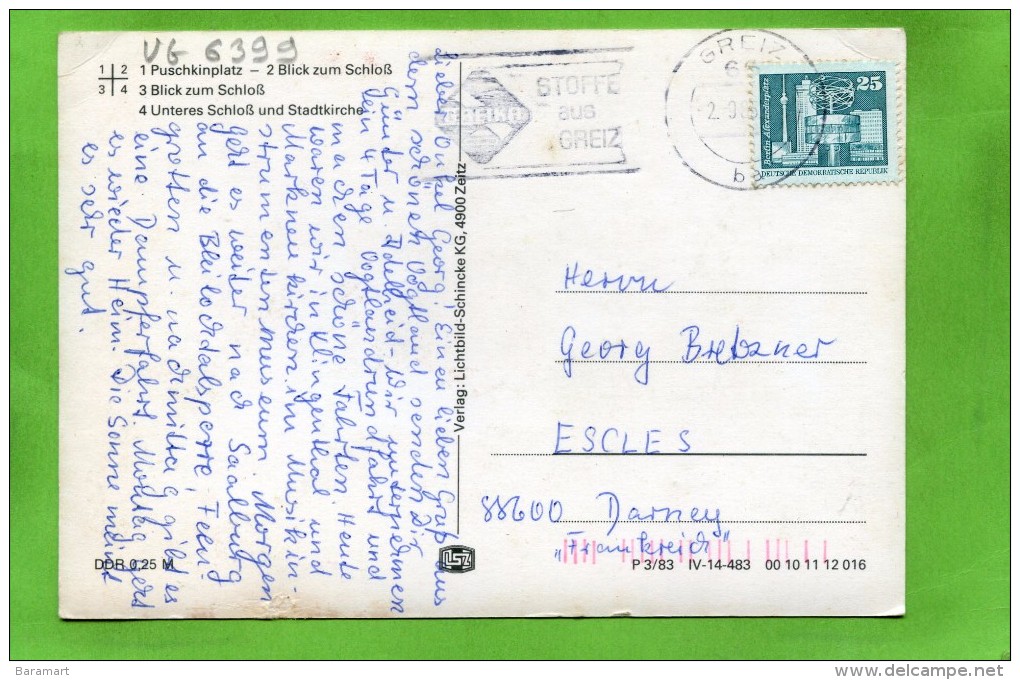 VG 6399
1 2
3 4
1 Puschkinplatz – 2 Blick zum Schloß
3 Blick zum Schloß
4 Unteres Schloß und Stadtkirche
Lieber Onkel Georg! Einen lieben Gruß aus
dem schönen Vogtland senden Dir
Günter u. Adelheid – wir unternehmen
ein 4 Tage Vogtlandrundfahrt und
machen schöne Fahrten. Heute
waren wir in Klingenthal und
Markneukirchen im Musikin-
strumentenmuseum. Morgen
geht es weiter nach Saalburg
an die Bleilochtalsperre, Feen-
grotten u. nachmittag gibt es
eine Dampferfahrt. Montag geht
es wieder Heim. Die Sonne meint
es sehr gut.
DDR 0,25 M
Verlag: Lichtbild-Schincke KG, 4900 Zeitz
LSZ
GREIKA
STOFFE
aus
GREIZ
GREIZ
ba
25
Berlin Alexanderplatz
DEUTSCHE DEMOKRATISCHE REPUBLIK
Herrn
Georg Bretzner
ESCLES
88600 Darney
„Frankreich"
P 3/83 IV-14-483 00 10 11 12 016
Baramart
delcampe.net